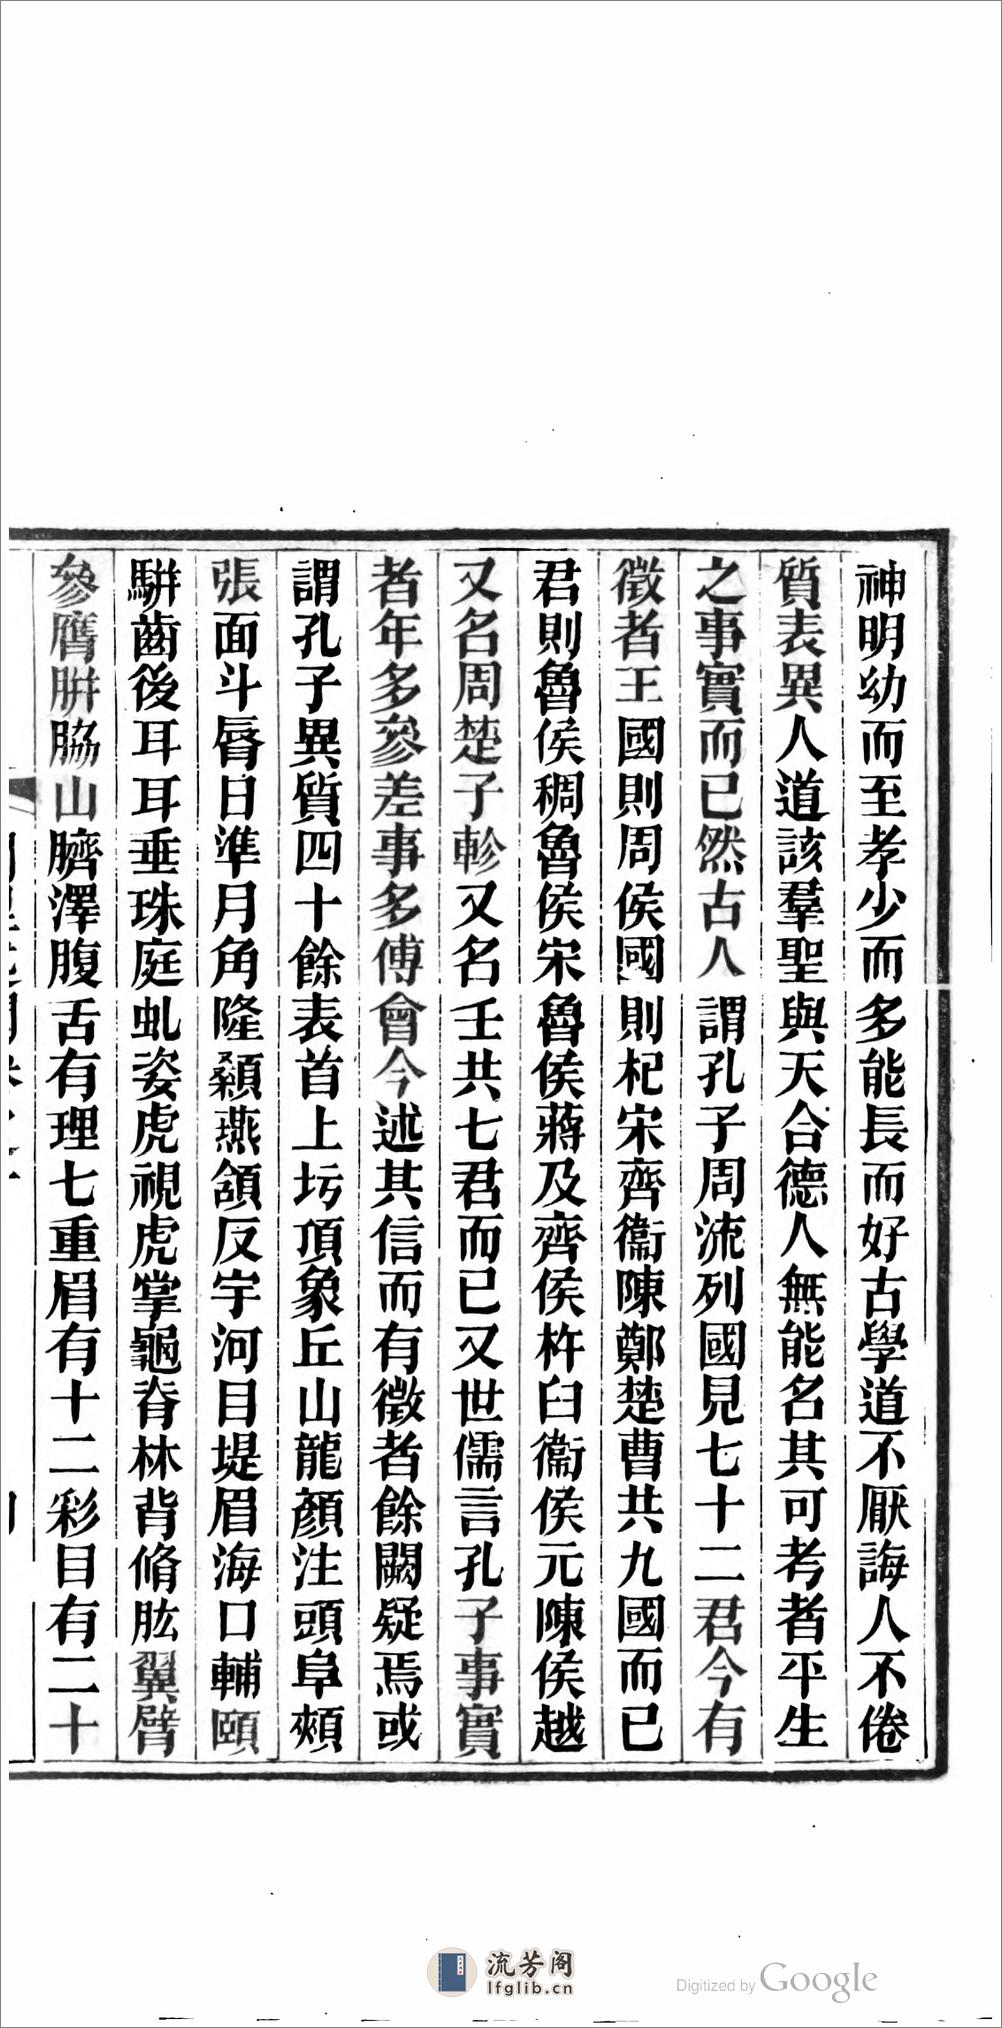 神明幼而至孝少而多能長而好古學道不厭誨人不倦
質表異人道該羣聖與天合德人無能名其可考者平生
之事實而已然古人謂孔子周流列國見七十二君今有
徵者王國則周侯國則杞宋齊衞陳鄭楚曹共九國而已
君則魯侯稠魯侯宋魯侯蔣及齊侯杵臼衞侯元陳侯越
又名周楚子軫又名壬共七君而已又世儒言孔子事實
者年多參差事多傅會今述其信而有徵者餘闕疑焉或
謂孔子異質四十餘表首上圬頂象丘山龍顏注頭阜頰
張面斗脣日準月角隆顙燕頷反宇河目堤眉海口輔頤
駢齒後耳耳垂珠庭虬姿虎視虎掌龜脊林背脩肱翼臂
參膺胼脇山臍澤腹舌有理七重眉有十二彩目有二十
流芳阁
lfglib.cn
Digitized by Google